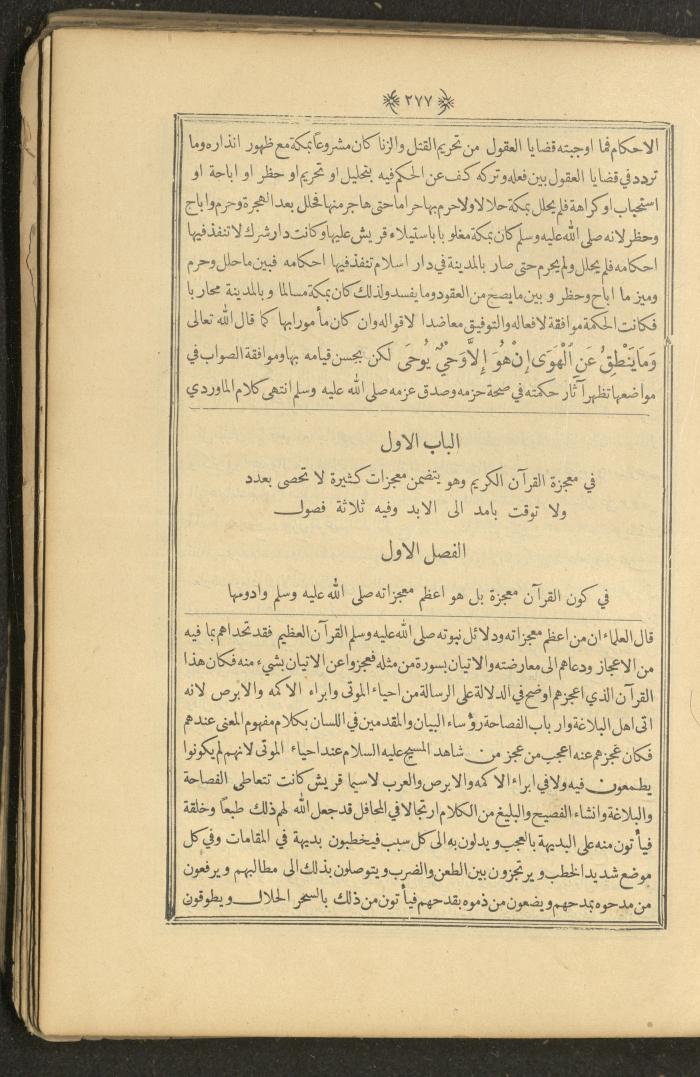 ٢٧٧
الاحكام فما اوجبته قضايا العقول من تحريم القتل والزنا كان مشروعاً بمكة مع ظهور انذاره وما
تردد في قضايا العقول بين فعله وتركه كف عن الحكم فيه بتحليل او تحريم او حظر او اباحة او
استحباب او كراهة فلم يحلل بمكة حلالا ولا حرم بها حراما حتى هاجر منها فحلل بعد الهجرة وحرم واباح
وحظر لانه صلى الله عليه وسلم كان بمكة مغلوبا باستيلاء قريش عليها وكانت دار شرك لا تنفذ فيها
احكامه فلم يحلل ولم يحرم حتى صار بالمدينة في دار اسلام تنفذ فيها احكامه فبين ما حلل وحرم
وميز ما اباح وحظر و بين ما يصح من العقود وما يفسد ولذلك كان بمكة مسالما و بالمدينة محاربا
فكانت الحكمة موافقة لافعاله والتوفيق معاضدا لاقواله وان كان مأمورا بها كما قال الله تعالى
وَمَا يَنْطِقُ عَنِ الْهَوَى إِنْ هُوَ إِلاَّ وَحْيٌ يُوحَى لكن بحسن قيامه بها وموافقة الصواب في
مواضعها تظهر آثار حكمته في صحة حزمه وصدق عزمه صلى الله عليه وسلم انتهى كلام الماوردي
الباب الاول
في معجزة القرآن الكريم وهو يتضمن معجزات كثيرة لا تحصى بعدد
ولا توقت بامد الى الابد وفيه ثلاثة فصول
الفصل الاول
في كون القرآن معجزة بل هو اعظم معجزاته صلى الله عليه وسلم وادومها
قال العلماء ان من اعظم معجزاته ودلائل نبوته صلى الله عليه وسلم القرآن العظيم فقد تحداهم بما فيه
من الاعجاز ودعاهم الى معارضته والاتيان بسورة من مثله فعجزوا عن الاتيان بشيء منه فكان هذا
القرآن الذي اعجزهم اوضح في الدلالة على الرسالة من احياء الموتى وابراء الاكمه والابرص لانه
اتى اهل البلاغة وار باب الفصاحة رؤساء البيان والمقدمين في اللسان بكلام مفهوم المعنى عندهم
فكان عجزهم عنه اعجب من عجز من شاهد المسيح عليه السلام عند احياء الموتى لانهم لم يكونوا
يطمعون فيه ولا في ابراء الاكمه والابرص والعرب لاسيما قريش كانت تتعاطى الفصاحة
والبلاغة وانشاء الفصيح والبليغ من الكلام ارتجالا في المحافل قد جعل الله لهم ذلك طبعاً وخلقة
فيأتون منه على البديهة بالعجب ويدلون به الى كل سبب فيخطبون بديهة في المقامات وفي كل
موضع شديد الخطب و يرتجزون بين الطعن والضرب ويتوصلون بذلك الى مطالبهم و يرفعون
من مدحوه بمدحهم ويضعون من ذموه بقدحهم فيأتون من ذلك بالسحر الحلال ويطوقون